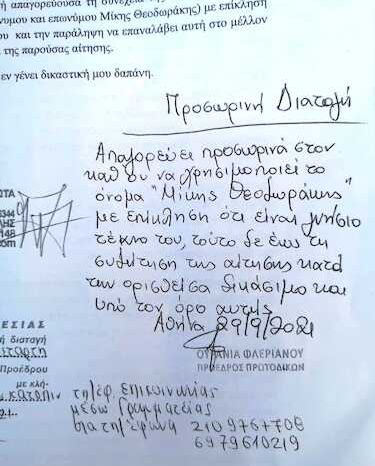 ή απαγορεύουσα τη συνέχεια της
νυμου και επωνύμου Μίκης Θεοδωράκης) με επίκληση
ου και την παράληψη να επαναλάβει αυτή στο μέλλον
ι της παρούσας αίτησης.
εν γένει δικαστική μου δαπάνη.
Προσωρινή Διαταγή
Απαγορεύει προσωρινά στον
καθ' ου να χρησιμοποιεί το
όνομα "Μίκης Θεοδωράκης"
με επίκληση ότι είναι γνήσιο
τέκνο του, τούτο δε έως τη
συζήτηση της αίτησης κατά
την ορισθείσα δικάσιμο και
υπό τον όρο αυτής
Αθήνα 29/9/2021
ΟΥΡΑΝΙΑ ΦΛΕΡΙΑΝΟΥ
ΠΡΟΕΔΡΟΣ ΠΡΩΤΟΔΙΚΩΝ
ΩΤΑ
3344
ΛΗΣ
148
com
ΕΣΙΑΣ
ή διαταγή
Προέδρου
με κλή-
κατόπιν τηλεφ. επικοινωνίας
μέσω Γραμματείας
στα τηλέφωνα 210 976 + 708
6979610219